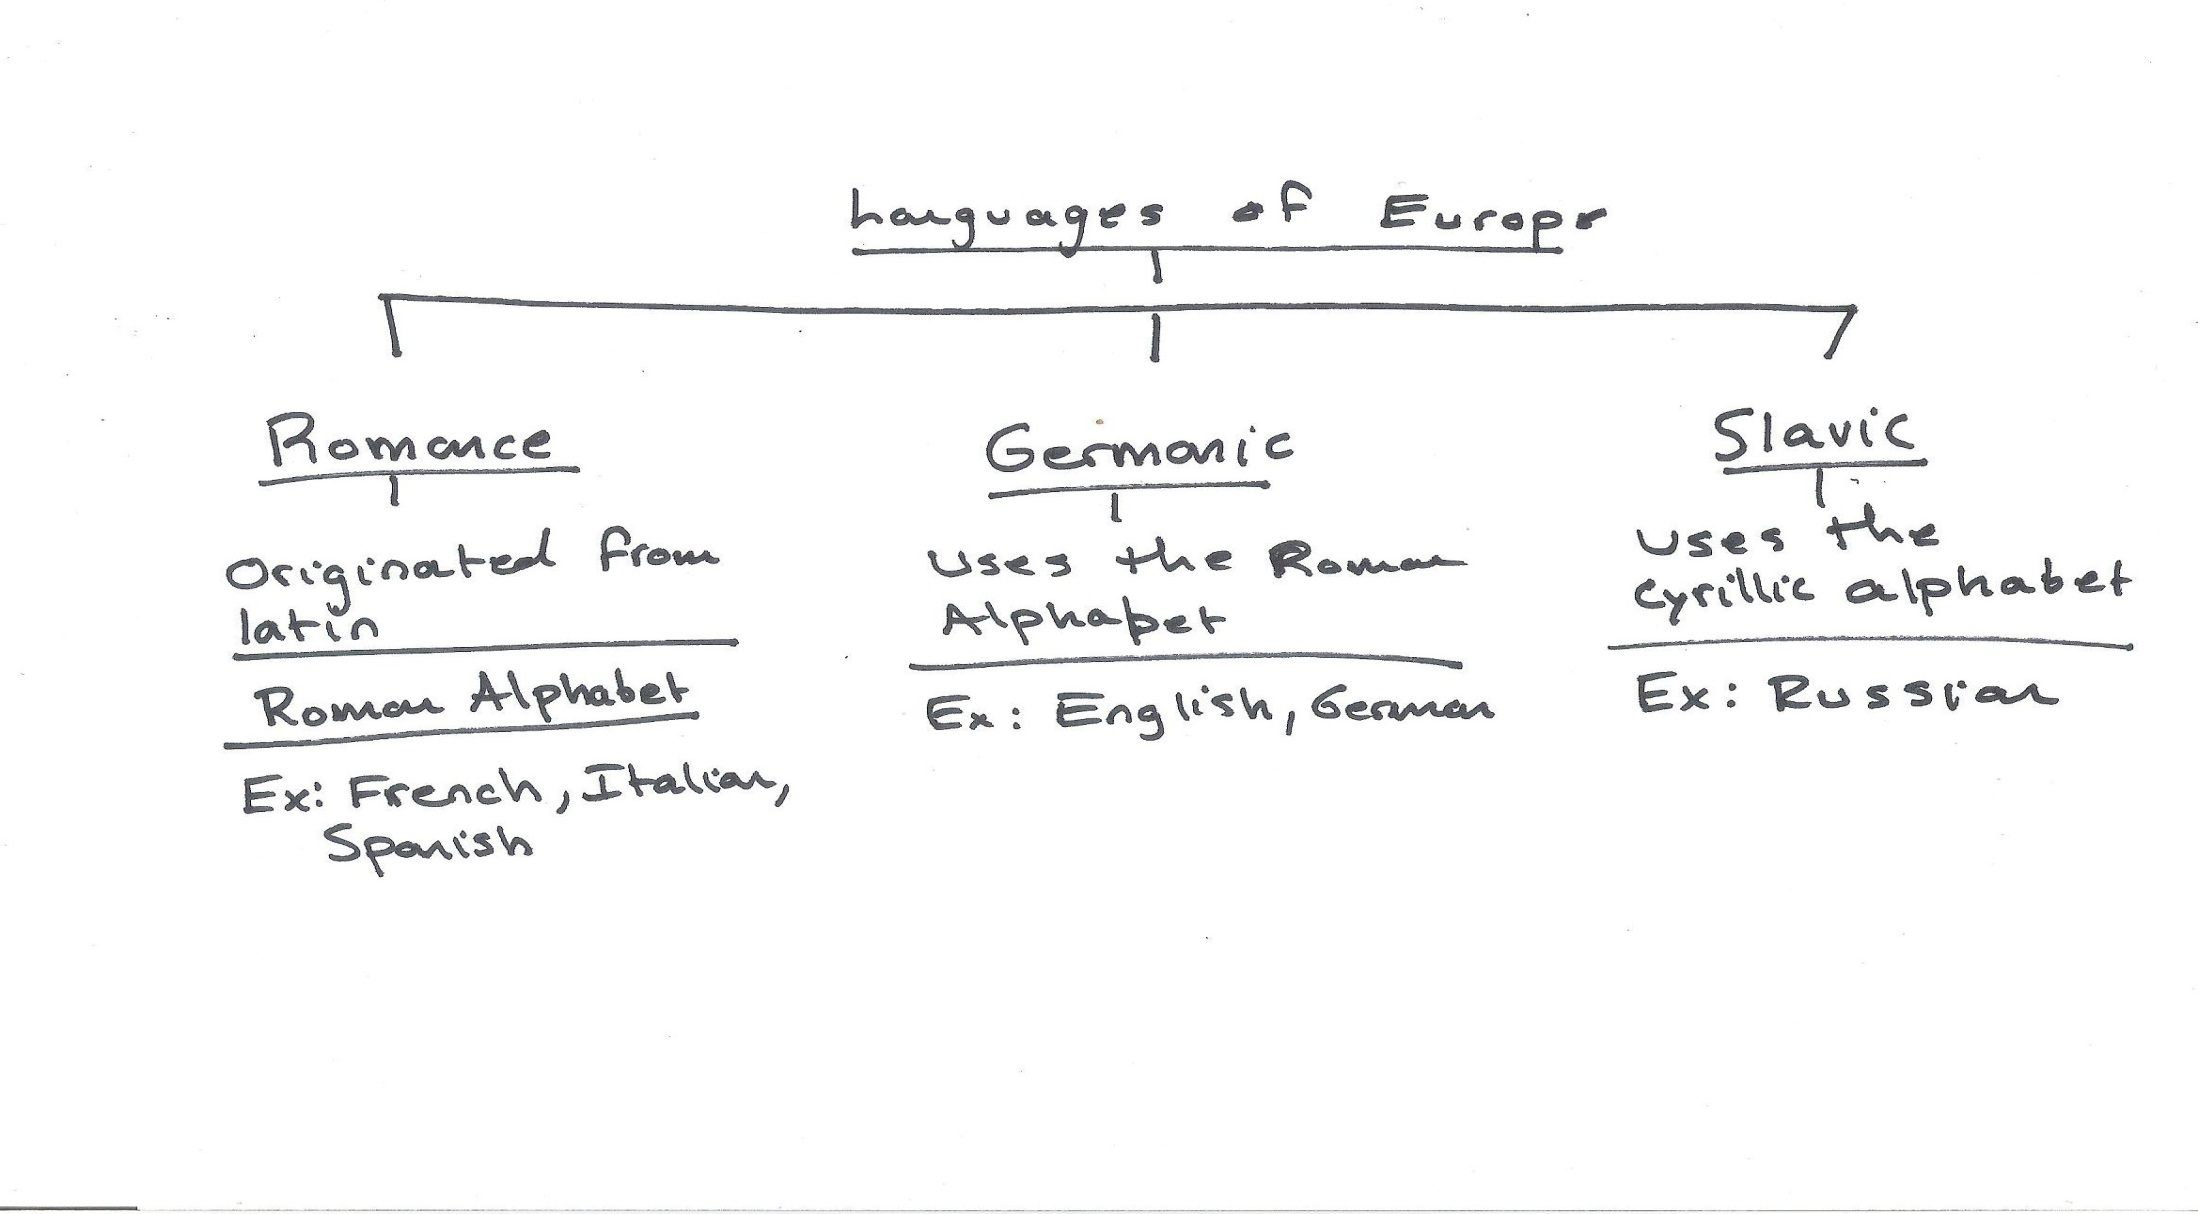 Languages of Europe
Romance
Originated from
latin
Roman Alphabet
Ex: French, Italian,
Spanish
Germanic
uses the Roman
Alphabet
Ex: English, German
Slavic
uses the
cyrillic alphabet
Ex: Russian